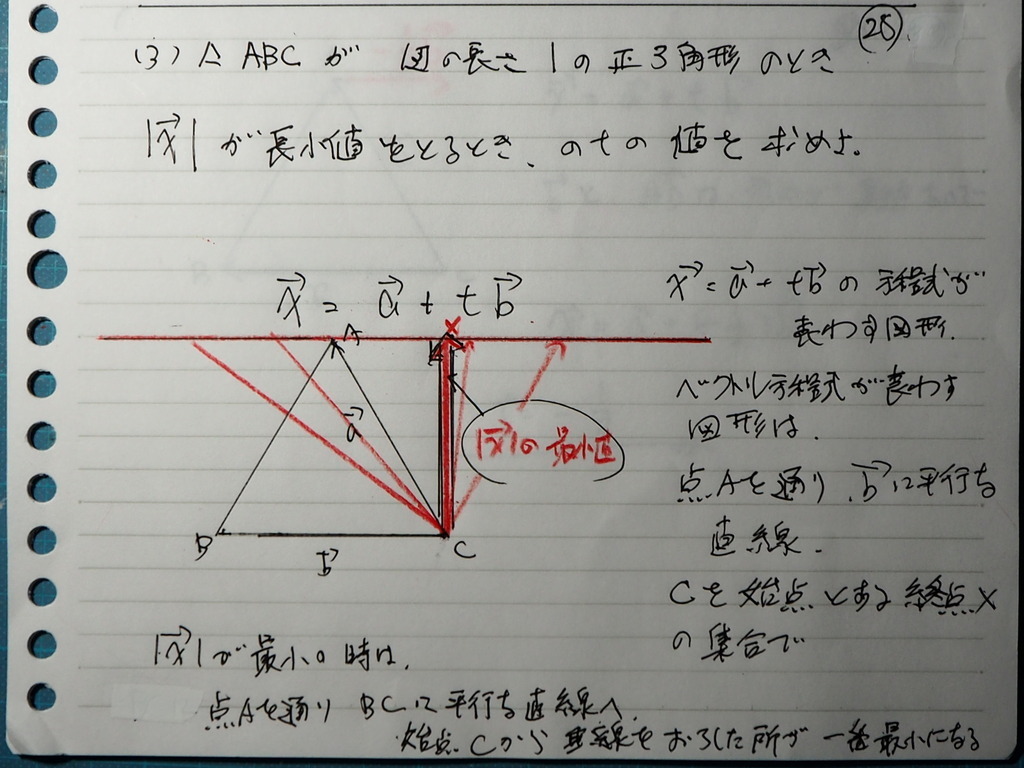 (25).
(3) △ABCが 辺の長さ1の正3角形のとき
|x→|が最小値をとるとき、のtの値を求めよ。
x→ = a→ + t b→
x→ = a→ + t b→ の方程式が
表わす図形.
A
X
a→
|x→|の最小値
B
C
b→
ベクトル方程式が表わす
図形は.
点Aを通り、b→に平行な
直線.
Cを始点とする終点X
の集合で
|x→|が最小の時は、
点Aを通り BCに平行な直線へ、
始点Cから垂線をおろした所が 一番最小になる